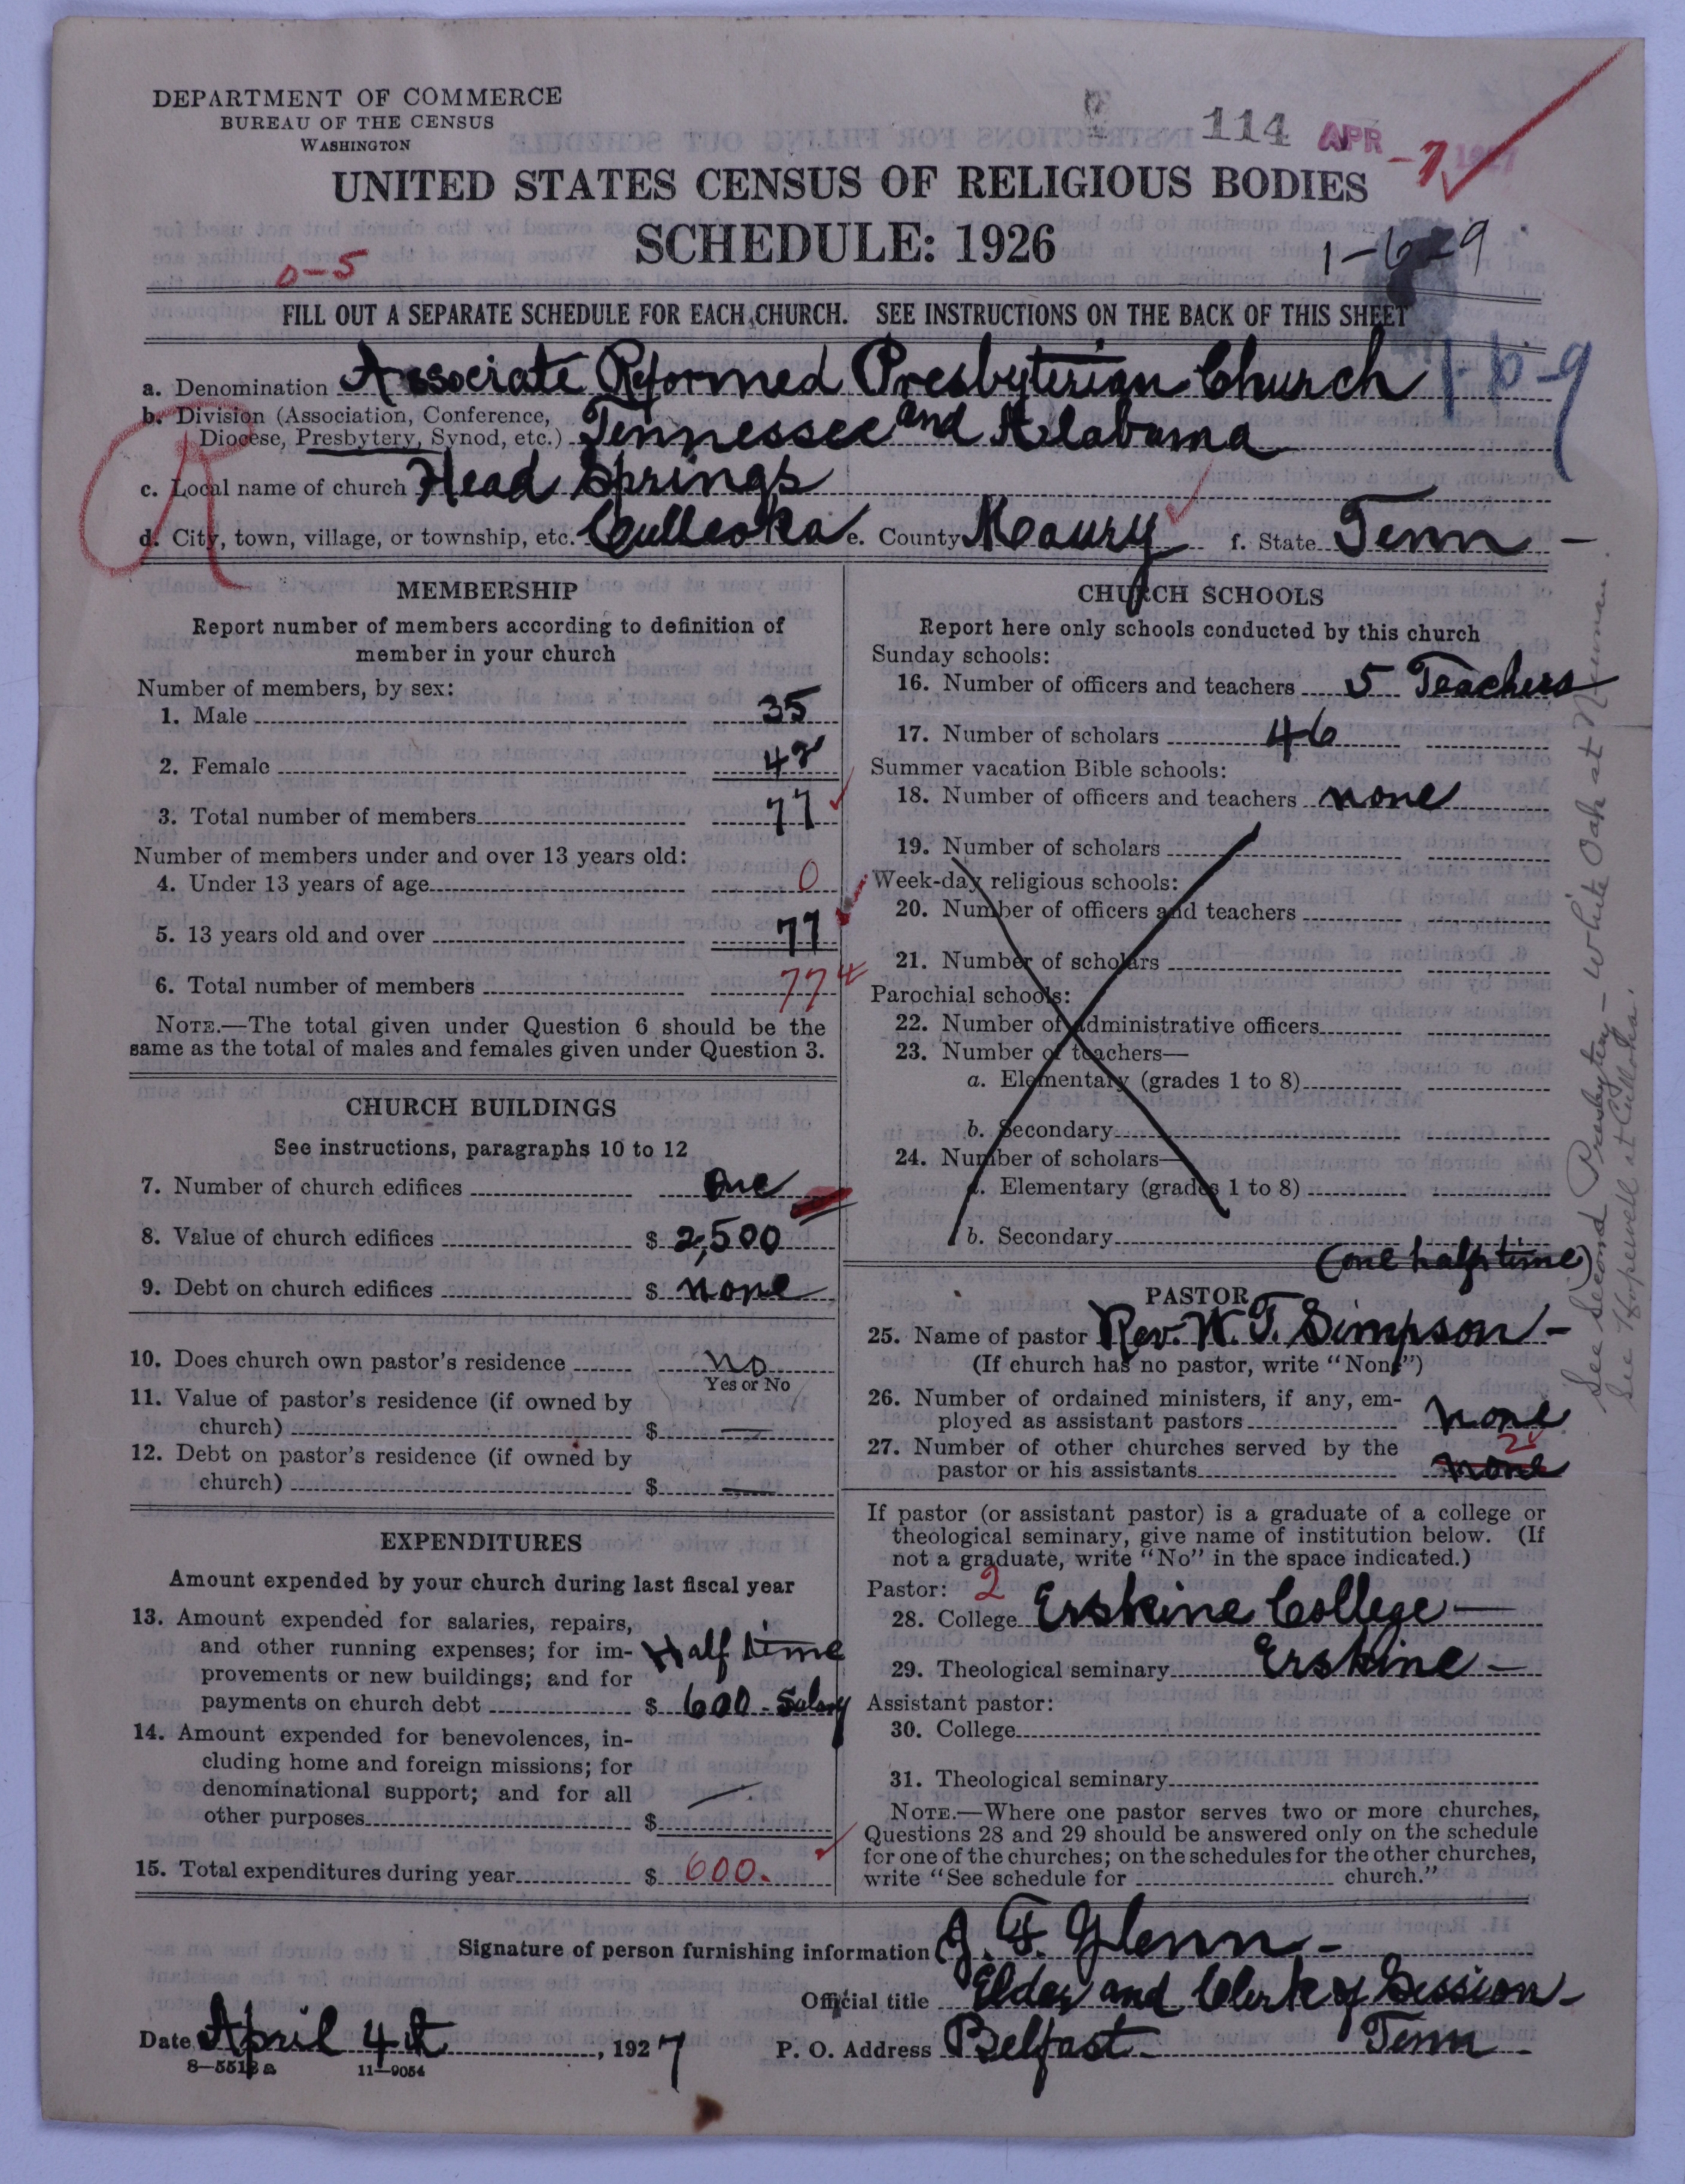 DEPARTMENT OF COMMERCE
BUREAU OF THE CENSUS
WASHINGTON
114 APR -7 1927
UNITED STATES CENSUS OF RELIGIOUS BODIES
SCHEDULE: 1926
0-5
1-6-9
FILL OUT A SEPARATE SCHEDULE FOR EACH CHURCH. SEE INSTRUCTIONS ON THE BACK OF THIS SHEET
a. Denomination Associate Reformed Presbyterian Church 1-6-9
b. Division (Association, Conference,
Diocese, Presbytery, Synod, etc.) Tennessee and Alabama
R
c. Local name of church Head Springs
d. City, town, village, or township, etc. Culleoka e. County Maury f. State Tenn -
MEMBERSHIP
Report number of members according to definition of
member in your church
Number of members, by sex:
1. Male 35
2. Female 42
3. Total number of members 77
Number of members under and over 13 years old:
4. Under 13 years of age 0
5. 13 years old and over 77
6. Total number of members 77
NOTE.—The total given under Question 6 should be the
same as the total of males and females given under Question 3.
CHURCH BUILDINGS
See instructions, paragraphs 10 to 12
7. Number of church edifices One
8. Value of church edifices $ 2,500
9. Debt on church edifices $ none
10. Does church own pastor's residence no
Yes or No
11. Value of pastor's residence (if owned by
church) $ —
12. Debt on pastor's residence (if owned by
church) $ —
EXPENDITURES
Amount expended by your church during last fiscal year
13. Amount expended for salaries, repairs,
and other running expenses; for im- Half time
provements or new buildings; and for
payments on church debt $ 600 - Salary
14. Amount expended for benevolences, in-
cluding home and foreign missions; for
denominational support; and for all —
other purposes $
15. Total expenditures during year $ 600.
CHURCH SCHOOLS
Report here only schools conducted by this church
Sunday schools:
16. Number of officers and teachers 5 Teachers
17. Number of scholars 46
Summer vacation Bible schools:
18. Number of officers and teachers none
19. Number of scholars
Week-day religious schools:
20. Number of officers and teachers
21. Number of scholars
Parochial schools:
22. Number of administrative officers
23. Number of teachers—
a. Elementary (grades 1 to 8)
b. Secondary
24. Number of scholars—
a. Elementary (grades 1 to 8)
b. Secondary
(one half time)
PASTOR
25. Name of pastor Rev. W. T. Simpson -
(If church has no pastor, write "None")
26. Number of ordained ministers, if any, em-
ployed as assistant pastors none
27. Number of other churches served by the 2
pastor or his assistants none
If pastor (or assistant pastor) is a graduate of a college or
theological seminary, give name of institution below. (If
not a graduate, write "No" in the space indicated.)
Pastor: 2
28. College Erskine College —
29. Theological seminary Erskine -
Assistant pastor:
30. College
31. Theological seminary
NOTE.—Where one pastor serves two or more churches,
Questions 28 and 29 should be answered only on the schedule
for one of the churches; on the schedules for the other churches,
write "See schedule for church."
See Second Presbytery - White Oak at Newnan.
See Hopewell at Culleoka.
Signature of person furnishing information J. F. Glenn -
Official title Elder and Clerk of Session -
Date April 4th, 1927 P. O. Address Belfast - Tenn -
8-5518a 11-9054